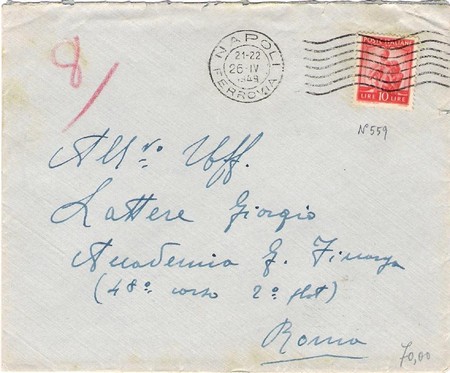 8/
NAPOLI
21-22
26·IV
1949
FERROVIA
POSTE ITALIANE
LIRE 10 LIRE
N°559
All'vo Uff.
Lattere Giorgio
Accademia G. Finanza
(48° corso 2° plot)
Roma
70,00